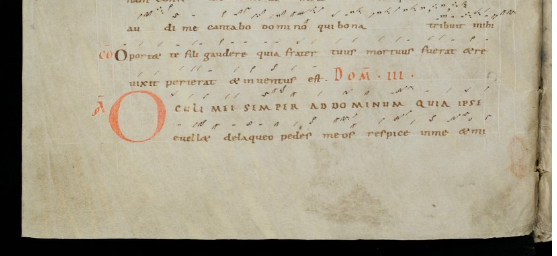 au di me cantabo domino qui bona tribuit mihi
CO Oportæ te fili gaudere quia frater tuus mortuus fuerat & re
uixit perierat & inuentus est. Dom. III.
OCULI MEI SEMPER AD DOMINUM QUIA IPSE
euell& de laqueo pedes meos respice in me & mi